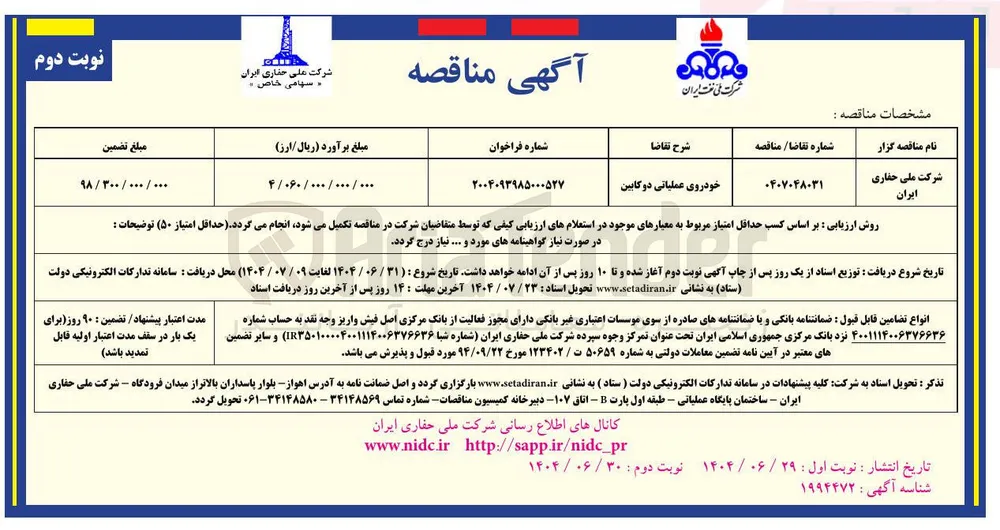 نوبت دوم
شرکت ملی حفاری ایران
« سهامی خاص »
آگهی مناقصه
شرکت ملی نفت ایران
مشخصات مناقصه :
نام مناقصه گزار
شماره تقاضا/ مناقصه
شرح تقاضا
شماره فراخوان
مبلغ برآورد (ریال/ارز)
مبلغ تضمین
شرکت ملی حفاری ایران
۰۴۰۷۰۴۸۰۳۱
خودروی عملیاتی دوکابین
۲۰۰۴۰۹۳۹۸۵۰۰۰۵۲۷
۴ / ۰۶۰ / ۰۰۰ / ۰۰۰ / ۰۰۰
۹۸ / ۳۰۰ / ۰۰۰ / ۰۰۰
روش ارزیابی : بر اساس کسب حداقل امتیاز مربوط به معیارهای موجود در استعلام های ارزیابی کیفی که توسط متقاضیان شرکت در مناقصه تکمیل می شود، انجام می گردد.(حداقل امتیاز ۵۰) توضیحات :
در صورت نیاز گواهینامه های مورد و ... نیاز درج گردد.
تاریخ شروع دریافت : توزیع اسناد از یک روز پس از چاپ آگهی نوبت دوم آغاز شده و تا ۱۰ روز پس از آن ادامه خواهد داشت. تاریخ شروع : ( ۳۱ / ۰۶ / ۱۴۰۴ لغایت ۰۹ / ۰۷ / ۱۴۰۴) محل دریافت : سامانه تدارکات الکترونیکی دولت
(ستاد) به نشانی www.setadiran.ir تحویل اسناد : ۲۳ / ۰۷ / ۱۴۰۴ آخرین مهلت : ۱۴ روز پس از آخرین روز دریافت اسناد
انواع تضامین قابل قبول : ضمانتنامه بانکی و یا ضمانتنامه های صادره از سوی موسسات اعتباری غیر بانکی دارای مجوز فعالیت از بانک مرکزی اصل فیش واریز وجه نقد به حساب شماره
۴۰۰۱۱۱۴۰۰۶۳۷۶۶۳۶ نزد بانک مرکزی جمهوری اسلامی ایران تحت عنوان تمرکز وجوه سپرده شرکت ملی حفاری ایران (شماره شبا IR۳۵۰۱۰۰۰۰۴۰۰۱۱۱۴۰۰۶۳۷۶۶۳۶) و سایر تضمین
های معتبر در آیین نامه تضمین معاملات دولتی به شماره ۵۰۶۵۹ ت / ۱۲۳۴۰۲ مورخ ۹۴/۰۹/۲۲ مورد قبول و پذیرش می باشد.
مدت اعتبار پیشنهاد/ تضمین : ۹۰ روز(برای
یک بار در سقف مدت اعتبار اولیه قابل
تمدید باشد)
تذکر : تحویل اسناد به شرکت: کلیه پیشنهادات در سامانه تدارکات الکترونیکی دولت ( ستاد ) به نشانی www.setadiran.ir بارگزاری گردد و اصل ضمانت نامه به آدرس اهواز- بلوار پاسداران بالاتراز میدان فرودگاه – شرکت ملی حفاری
ایران – ساختمان پایگاه عملیاتی – طبقه اول پارت B – اتاق ۱۰۷- دبیرخانه کمیسیون مناقصات- شماره تماس ۳۴۱۴۸۵۶۹ – ۳۴۱۴۸۵۸۰-۰۶۱ تحویل گردد.
کانال های اطلاع رسانی شرکت ملی حفاری ایران
www.nidc.ir http://sapp.ir/nidc_pr
تاریخ انتشار : نوبت اول : ۲۹ / ۰۶ / ۱۴۰۴ نوبت دوم : ۳۰ / ۰۶ / ۱۴۰۴
شناسه آگهی : ۱۹۹۴۴۷۲
AriaTender